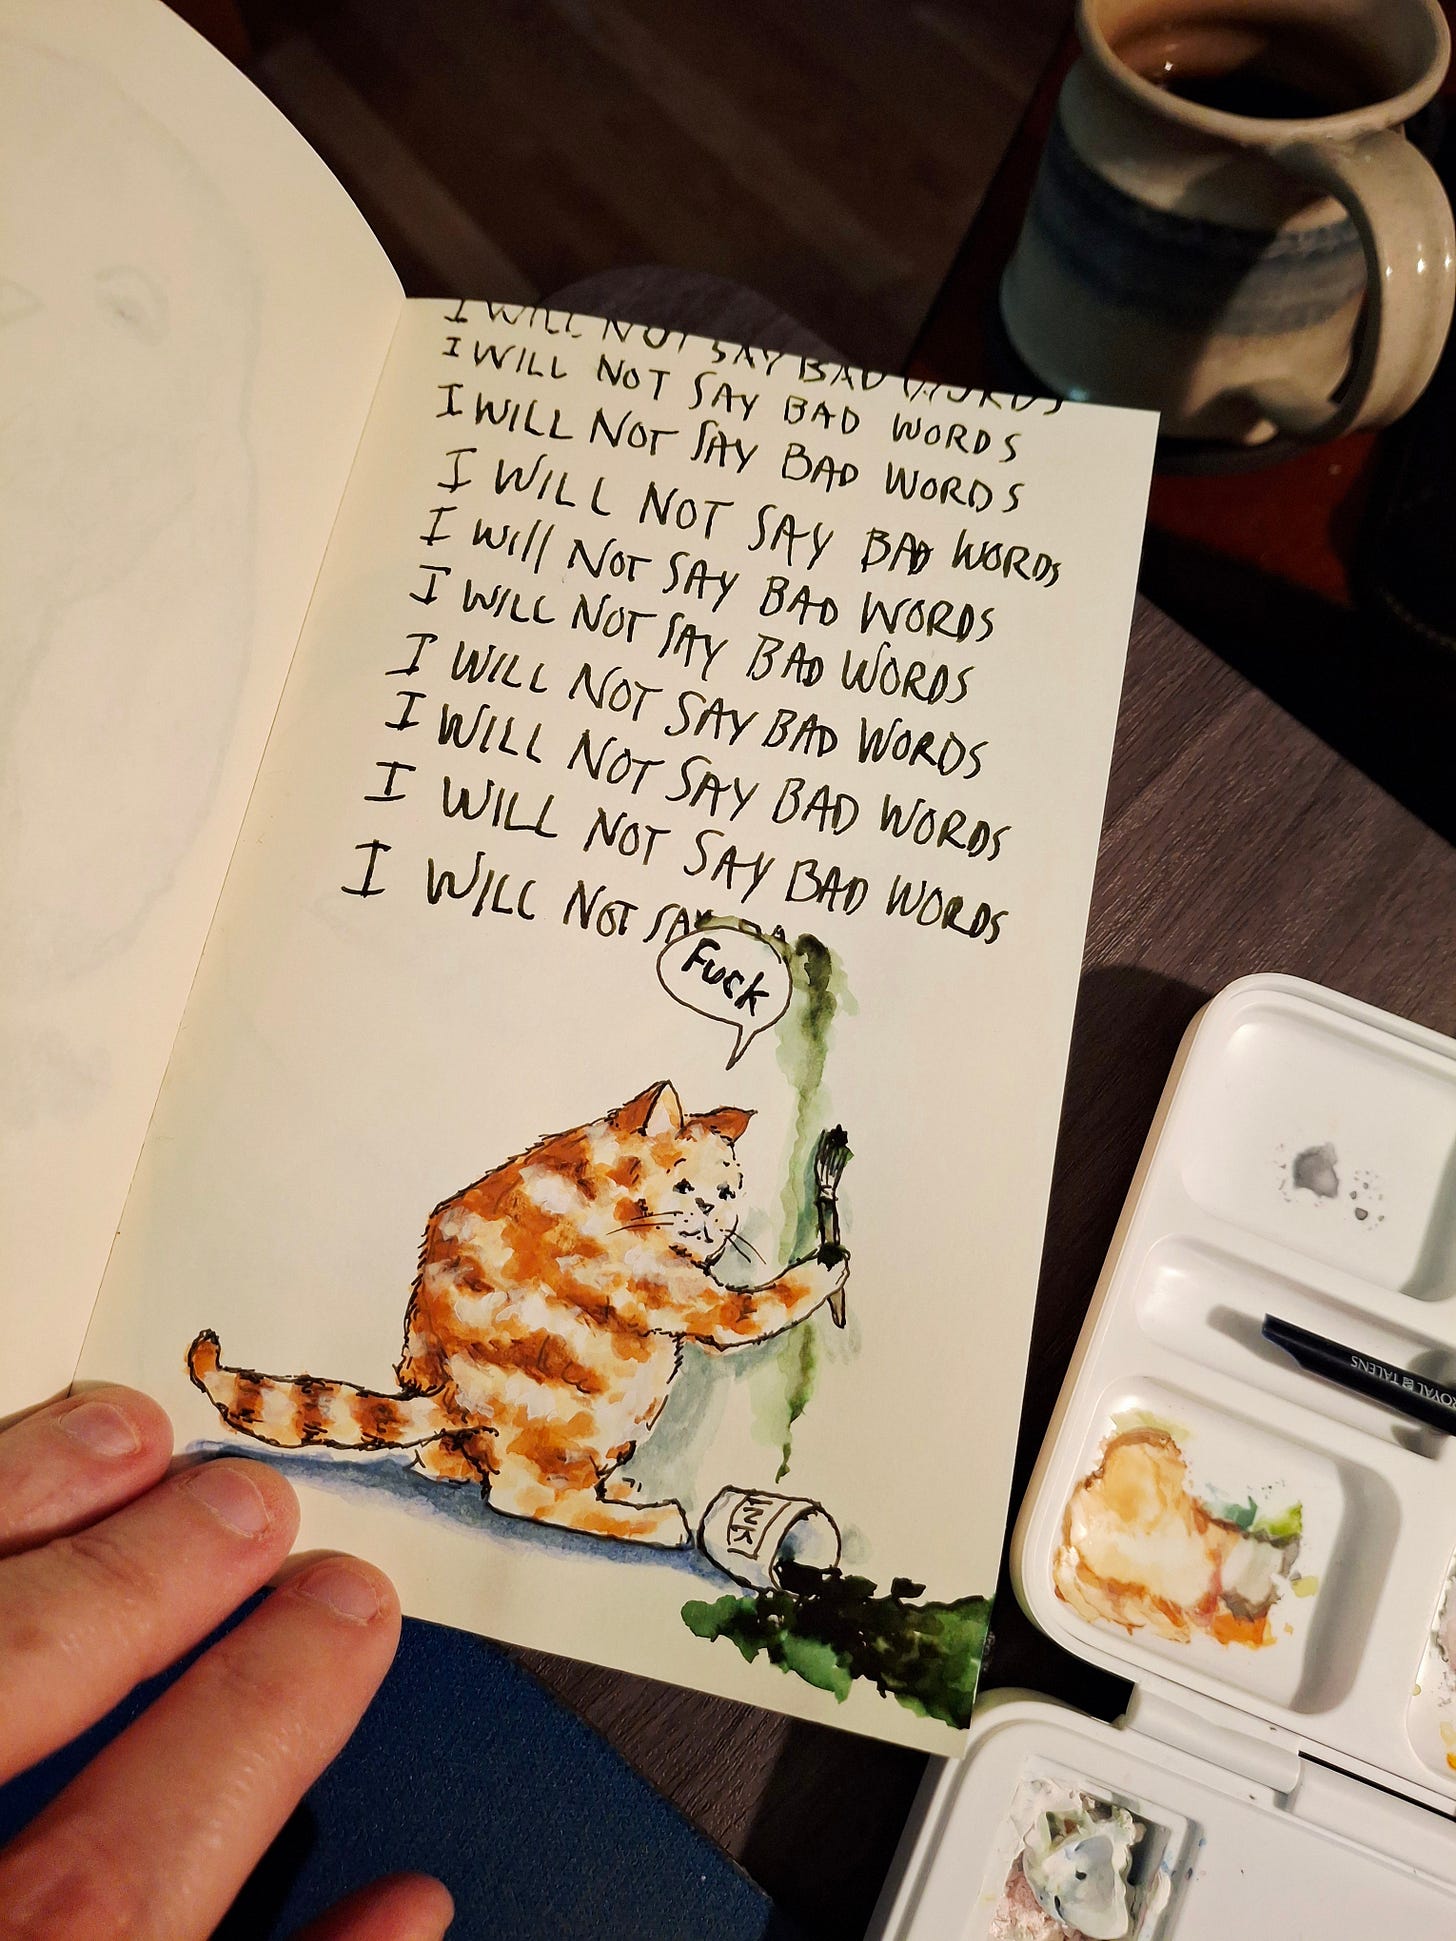 I WILL NOT SAY BAD WORDS
I WILL NOT SAY BAD WORDS
I WILL NOT SAY BAD WORDS
I WILL NOT SAY BAD WORDS
I Will NOT SAY BAD WORDS
I WILL NOT SAY BAD WORDS
I WILL NOT SAY BAD WORDS
I WILL NOT SAY BAD WORDS
I WILL NOT SAY BAD WORDS
I WILL NOT SAY BA
Fuck
INK
ROYAL & TALENS